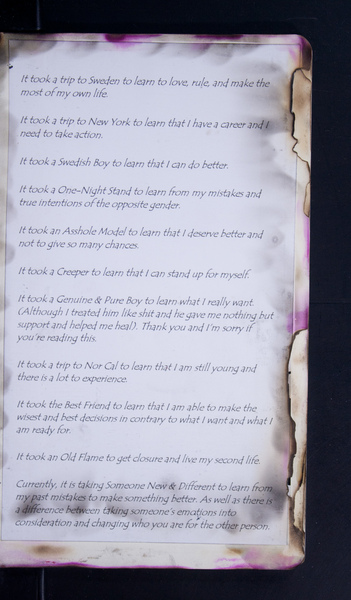 It took a trip to Sweden to learn to love, rule, and make the
most of my own life.
It took a trip to New York to learn that I have a career and I
need to take action.
It took a Swedish Boy to learn that I can do better.
It took a One-Night Stand to learn from my mistakes and
true intentions of the opposite gender.
It took an Asshole Model to learn that I deserve better and
not to give so many chances.
It took a Creeper to learn that I can stand up for myself.
It took a Genuine & Pure Boy to learn what I really want.
(Although I treated him like shit and he gave me nothing but
support and helped me heal). Thank you and I'm sorry if
you're reading this.
It took a trip to Nor Cal to learn that I am still young and
there is a lot to experience.
It took the Best Friend to learn that I am able to make the
wisest and best decisions in contrary to what I want and what I
am ready for.
It took an Old Flame to get closure and live my second life.
Currently, it is taking Someone New & Different to learn from
my past mistakes to make something better. As well as there is
a difference between taking someone's emotions into
consideration and changing who you are for the other person.